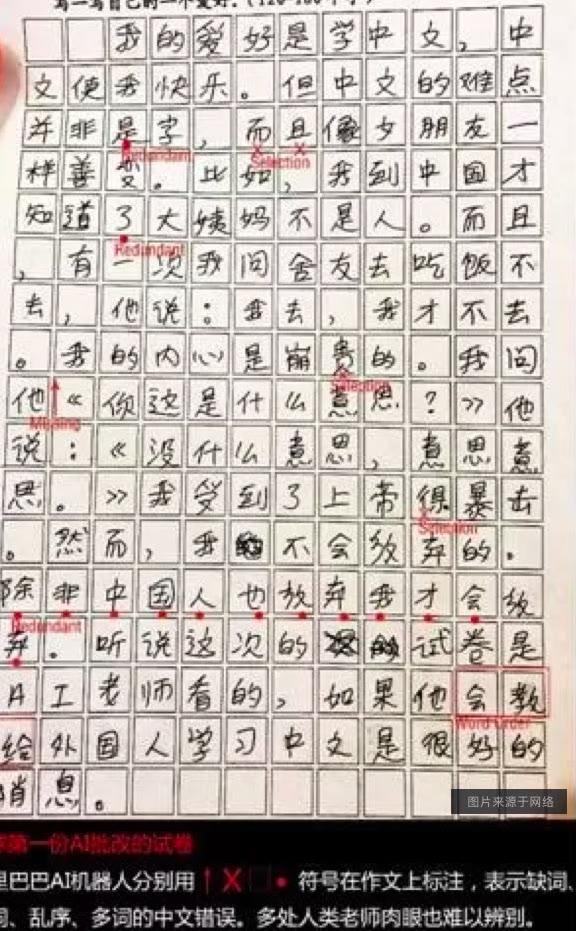 写一写自己的一个爱好.(120-160个字)
我的爱好是学中文,中
文使我快乐。但中文的难点
并非是字,而且像女朋友一
Redundant
Selection
样善变。比如,我到中国才
知道了大姨妈不是人。而且
Redundant
,有一次我问舍友去吃饭不
去,他说:我去,我才不去
。我的内心是崩贵的。我问
Selection
他《你这是什么意思?》他
Missing
说:《没什么意思,意思意
思。》我受到了上帝得暴击
Selection
。然而,我不会放弃的.
除非中国人也放弃我才会放
Redundant
弃。听说这次的试卷是
AI老师看的,如果他会教
Word Order
给外国人学习中文是很好的
消息。
图片来源于网络
第一份AI批改的试卷
里巴巴AI机器人分别用↑X□•符号在作文上标注,表示缺词、
词、乱序、多词的中文错误。多处人类老师肉眼也难以辨别。